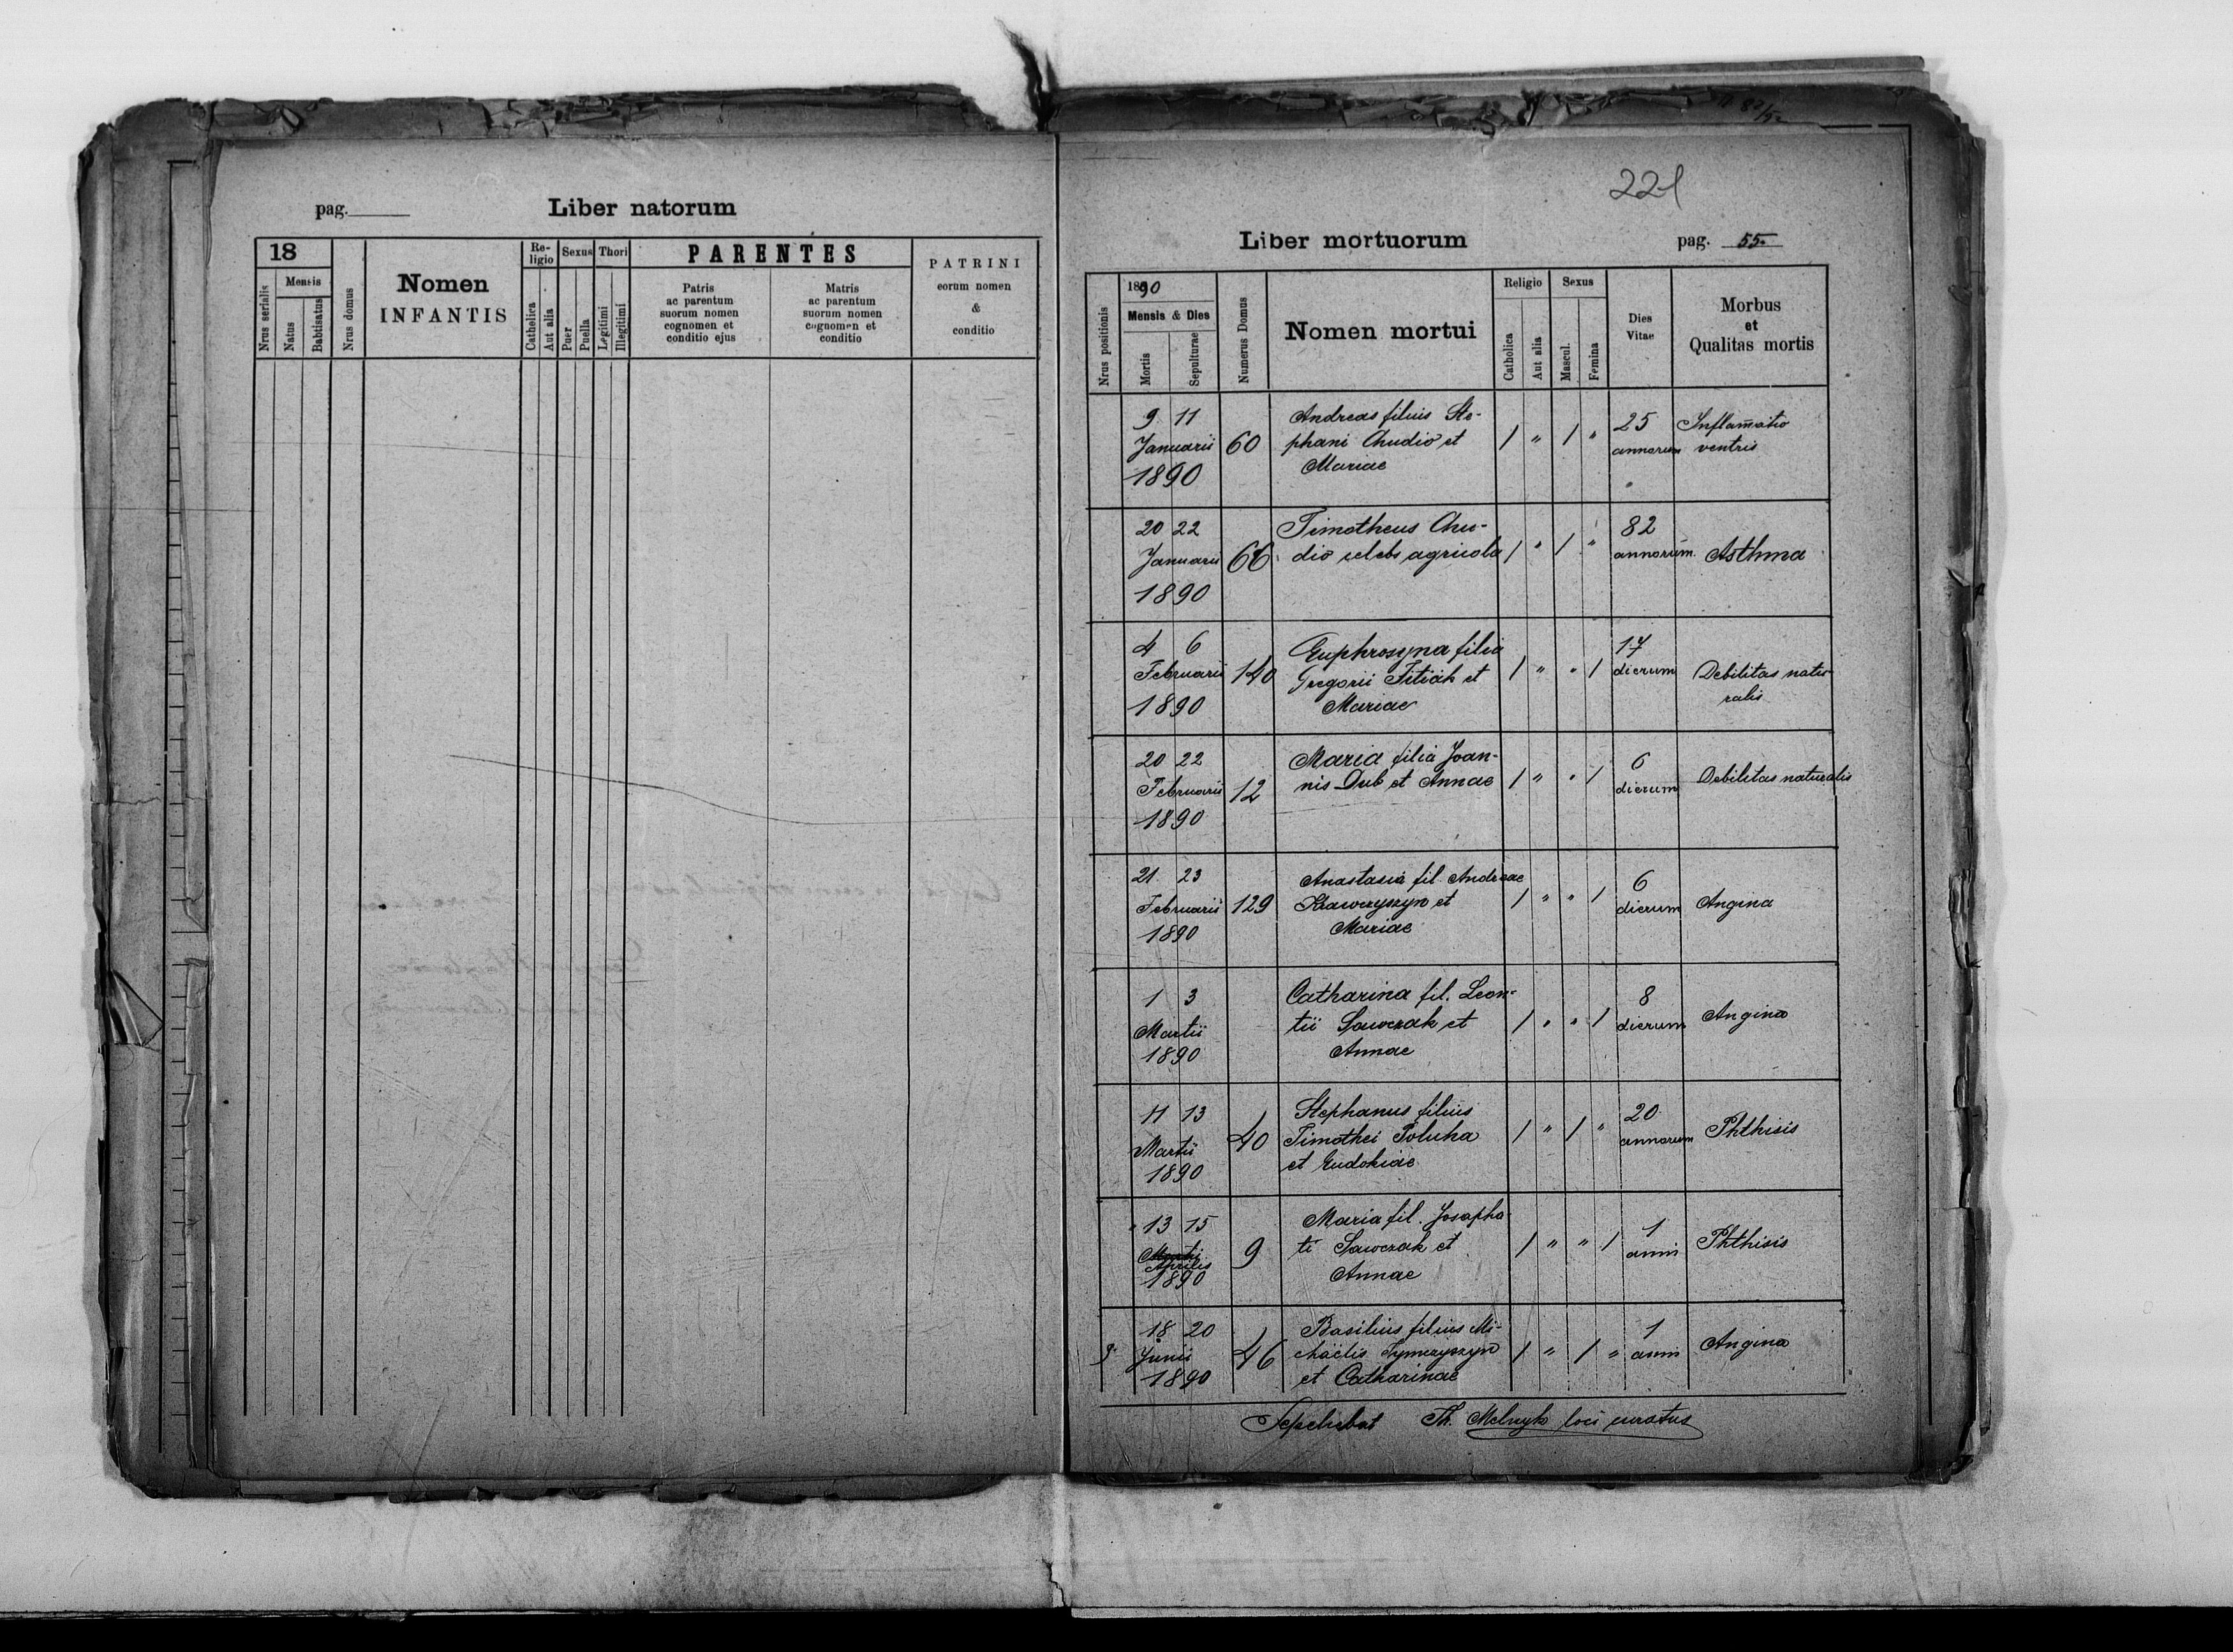 pag.
Liber natorum
18
Mensis
Nrus serialis
Natus
Babtisatus
Nrus domus
Nomen
INFANTIS
Re-
ligio
Catholica
Aut alia
Sexus
Puer
Puella
Thori
Legitimi
Illegitimi
PARENTES
Patris
ac parentum
suorum nomen
cognomen et
conditio ejus
Matris
ac parentum
suorum nomen
cognomen et
conditio
PATRINI
eorum nomen
&
conditio
221
Liber mortuorum
pag. 55.
Nrus positionis
1890
Mensis & Dies
Mortis
Sepulturae
Numerus Domus
Nomen mortui
Religio
Catholica
Aut alia
Sexus
Mascul.
Femina
Dies
Vitae
Morbus
et
Qualitas mortis
9 11
Januarii
1890
60
Andreas filius Ste-
phani Chudio et
Mariae
/ " / "
25
annorum
Inflam̄atio
ventris
20 22
Januarii
1890
66
Timotheus Chu-
dio celebs agricola
/ " / "
82
annorum.
Asthma
4 6
Februarii
1890
140
Euphrosyna filia
Gregorii Fitiak et
Mariae
/ " " /
17
dierum
Debilitas natu-
ralis
20 22
Februarii
1890
12
Maria filia Joan-
nis Dub et Annae
/ " " /
6
dierum
Debilitas naturalis
21 23
Februarii
1890
129
Anastasia fil. Andreae
Krawczyszyn et
Mariae
/ " " /
6
dierum
Angina
1 3
Martii
1890
Catharina fil. Leon-
tii Sawczak et
Annae
/ " " /
8
dierum
Angina
11 13
Martii
1890
40
Stephanus filius
Timothei Poluha
et Eudokiae
/ " / "
20
annorum
Phthisis
13 15
Martii
Aprilis
1890
9
Maria fil. Josapha-
ti Sawczak et
Annae
/ " " /
1
anni
Phthisis
18 20
Junii
1890
46
Basilius filius Mi-
chaëlis Tymczyszyn
et Catharinae
/ " / "
1
anni
Angina
Sepeliebat Th. Melnyk loci curatus